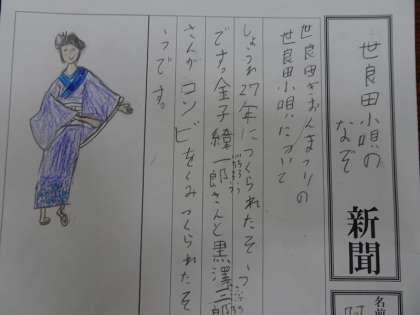 世良田小唄の
なぞ
新聞
名前
世良田ぎおんまつりの
世良田小唄について
しょうわ27年につくられたそう
です。金子繞一郎さんと黒澤三郎
さんがコンビをくみつくられたそ
うです。